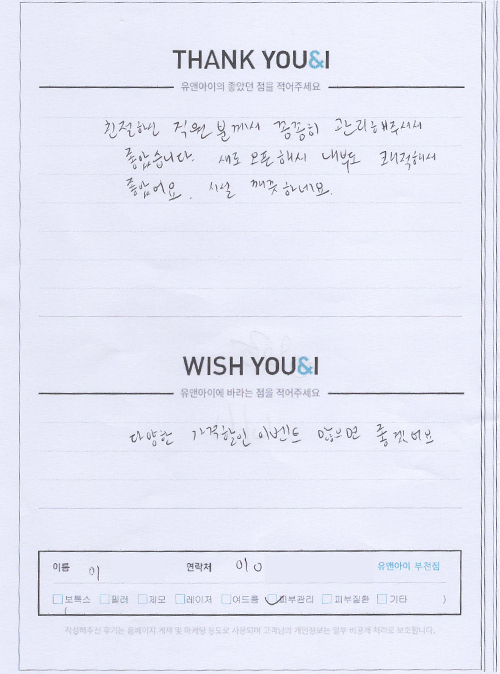 THANK YOU&I
유앤아이의 좋았던 점을 적어주세요
친절하신 직원 분께서 꼼꼼히 관리해주셔서
좋았습니다. 새로 오픈해서 내부도 쾌적해서
좋았어요. 시설 깨끗하네요.
WISH YOU&I
유앤아이에 바라는 점을 적어주세요
다양한 가격할인 이벤트 많으면 좋겠어요
이름 이 연락처 010 유앤아이 부천점
보톡스 필러 제모 레이저 여드름 피부관리 피부질환 기타 )
(
작성해주신 후기는 홈페이지 게재 및 마케팅 용도로 사용되며 고객님의 개인정보는 일부 비공개 처리로 보호됩니다.